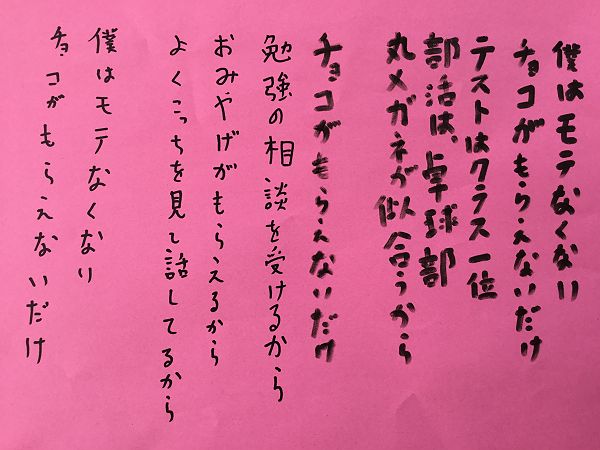 僕はモテなくない
チョコがもらえないだけ
テストはクラス一位
部活は、卓球部
丸メガネが似合うから
チョコがもらえないだけ
勉強の相談を受けるから
おみやげがもらえるから
よくこっちを見て話してるから
僕はモテなくない
チョコがもらえないだけ